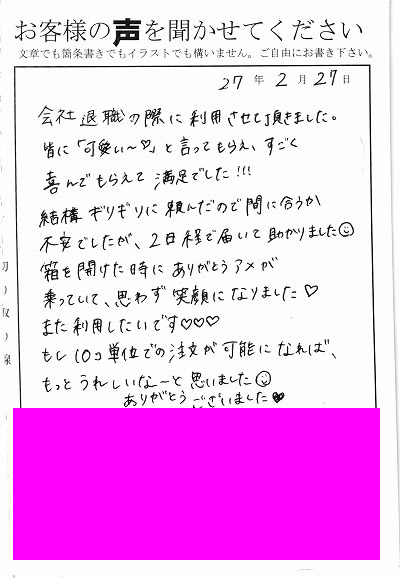 お客様の声を聞かせてください
文章でも箇条書きでもイラストでも構いません。ご自由にお書き下さい。
27年2月27日
会社退職の際に利用させて頂きました。
皆に「可愛い〜♡」と言ってもらえ、すごく
喜んでもらえて満足でした!!!
結構ギリギリに頼んだので間に合うか
不安でしたが、2日程で届いて助かりました☺
箱を開けた時にありがとうアメが
乗っていて、思わず笑顔になりました♡
また利用したいです♡♡♡
もし10コ単位での注文が可能になれば、
もっとうれしいなーと思いました☺
ありがとうございました♥
切り取り線